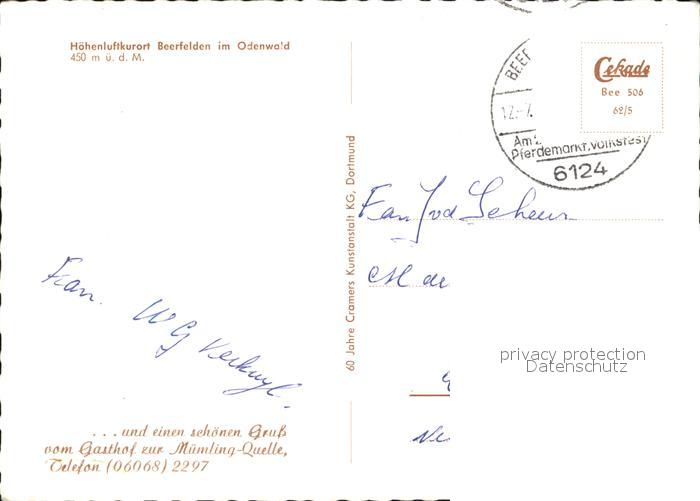 Höhenluftkurort Beerfelden im Odenwald
450 m ü. d. M.
BEERF
12.-7.
Am
Pferdemarkt, Volksfest
6124
Cekade
Bee 506
62/5
60 Jahre Cramers Kunstanstalt KG, Dortmund
Fam J vd Scheur
Fam. W G
privacy protection
Datenschutz
. . . und einen schönen Gruß
vom Gasthof zur Mümling-Quelle,
Telefon (06068) 2297